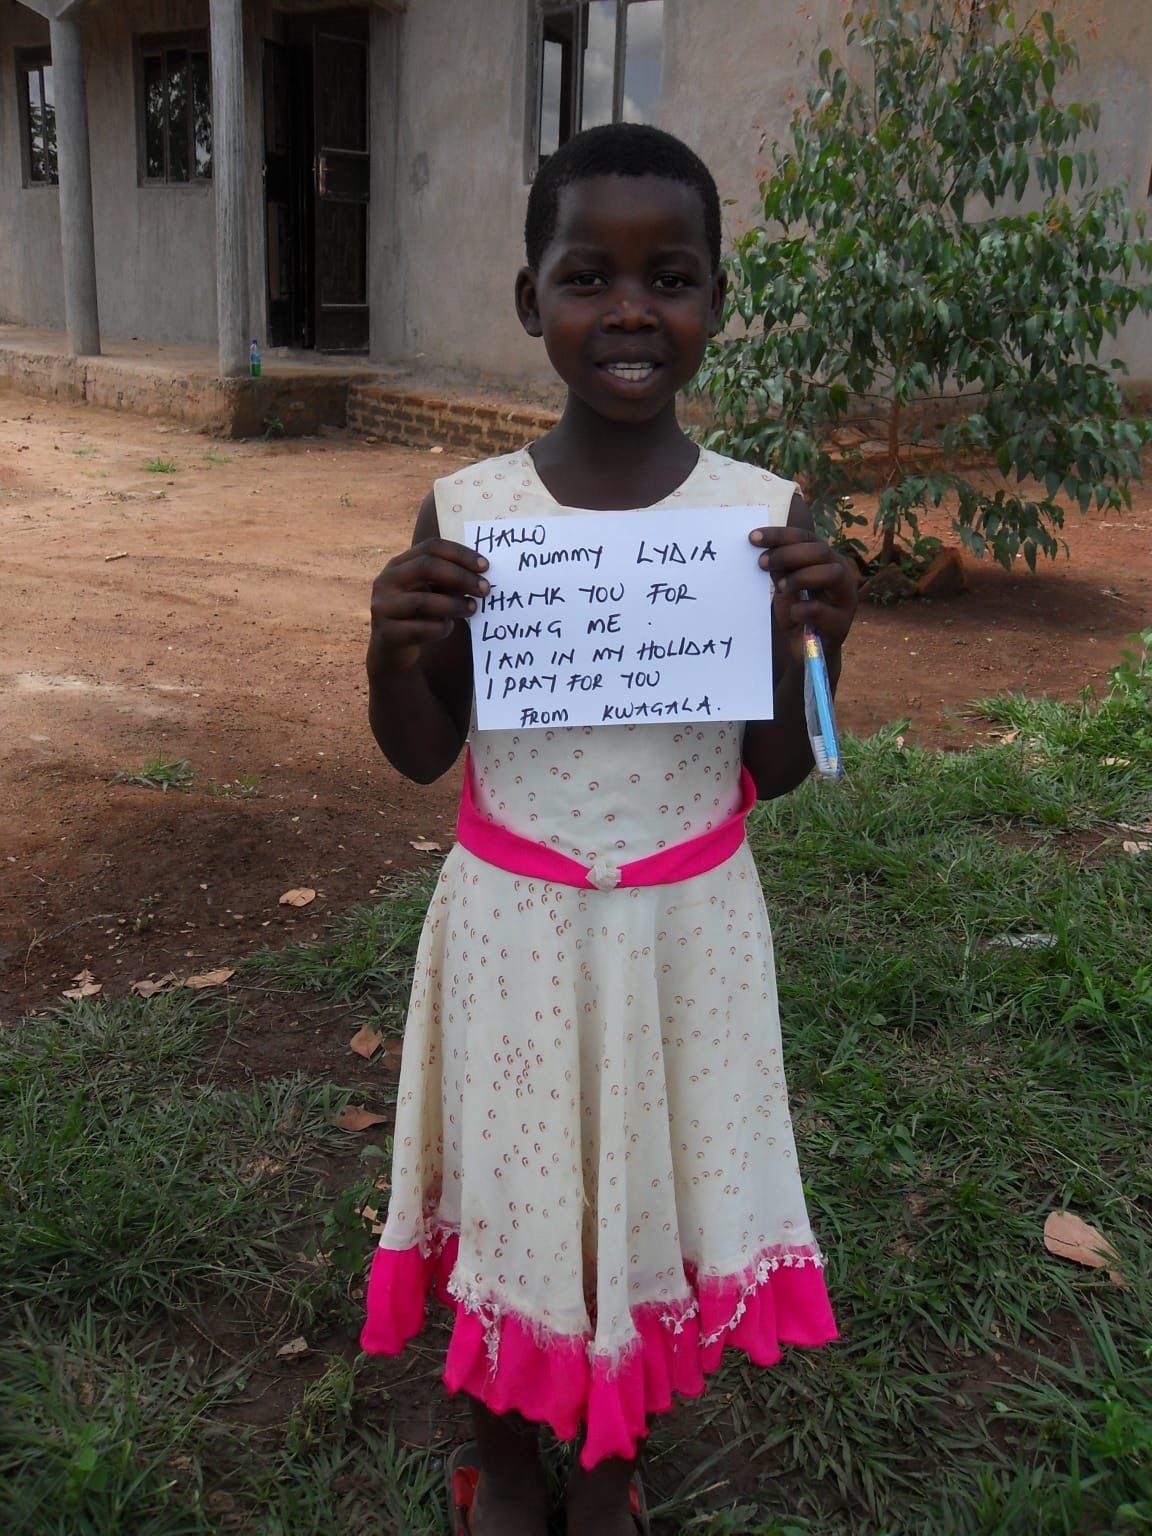 HALLO
MUMMY LYDIA
THANK YOU FOR
LOVING ME.
I AM IN MY HOLIDAY
I PRAY FOR YOU
FROM KWAGALA.